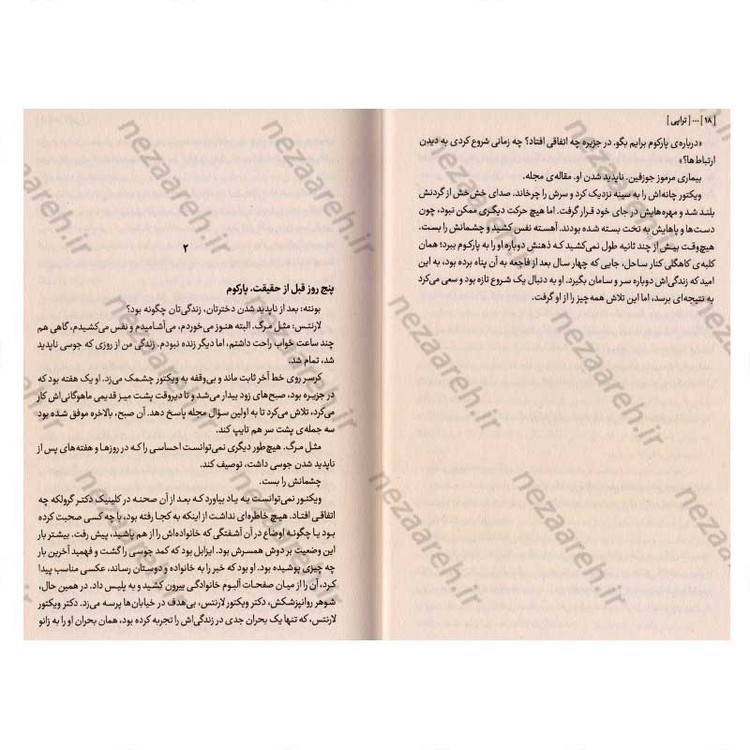 [ ۱۸ ] ... [ تراپی ]
«درباره‌ی پارکوم برایم بگو. در جزیره چه اتفاقی افتاد؟ چه زمانی شروع کردی به دیدن
ارتباط‌ها؟»
بیماری مرموز جوزفین. ناپدید شدن او. مقاله‌ی مجله.
ویکتور چانه‌اش را به سینه نزدیک کرد و سرش را چرخاند. صدای خش‌خش از گردنش
بلند شد و مهره‌هایش در جای خود قرار گرفت. اما هیچ حرکت دیگری ممکن نبود، چون
دست‌ها و پاهایش به تخت بسته شده بودند. آهسته نفس کشید و چشمانش را بست.
هیچ‌وقت بیش از چند ثانیه طول نمی‌کشید که ذهنش دوباره او را به پارکوم ببرد؛ همان
کلبه‌ی کاهگلی کنار ساحل، جایی که چهار سال بعد از فاجعه به آن پناه برده بود، به این
امید که زندگی‌اش دوباره سر و سامان بگیرد. او به دنبال یک شروع تازه بود و سعی می‌کرد
به نتیجه‌ای برسد، اما این تلاش همه‌چیز را از او گرفت.
۲
پنج روز قبل از حقیقت. پارکوم
بونته: بعد از ناپدید شدن دخترتان، زندگی‌تان چگونه بود؟
لارنتس: مثل مرگ. البته هنوز می‌خوردم، می‌آشامیدم و نفس می‌کشیدم، گاهی هم
چند ساعت خواب راحت داشتم، اما دیگر زنده نبودم. زندگی من از روزی که جوسی ناپدید
شد، تمام شد.
کرسر روی خط آخر ثابت ماند و بی‌وقفه به ویکتور چشمک می‌زد. او یک هفته بود که
در جزیره بود، صبح‌های زود بیدار می‌شد و تا دیروقت پشت میز قدیمی ماهوگانی‌اش کار
می‌کرد، تلاش می‌کرد تا به اولین سؤال مجله پاسخ دهد. آن صبح، بالاخره موفق شده بود
سه جمله‌ی پشت سر هم تایپ کند.
مثل مرگ. هیچ‌طور دیگری نمی‌توانست احساسی را که در روزها و هفته‌های پس از
ناپدید شدن جوسی داشت، توصیف کند.
چشمانش را بست.
ویکتور نمی‌توانست به یاد بیاورد که بعد از آن صحنه در کلینیک دکتر گرولکه چه
اتفاقی افتاد. هیچ خاطره‌ای نداشت از اینکه به کجا رفته بود، با چه کسی صحبت کرده
بود یا چگونه اوضاع در آن آشفتگی که خانواده‌اش را از هم پاشید، پیش رفت. بیشتر بار
این وضعیت بر دوش همسرش بود. ایزابل بود که کمد جوسی را گشت و فهمید آخرین بار
چه چیزی پوشیده بود. او بود که خبر را به خانواده و دوستان رساند، عکسی مناسب پیدا
کرد، آن را از میان صفحات آلبوم خانوادگی بیرون کشید و به پلیس داد. در همین حال،
شوهر روانپزشکش، دکتر ویکتور لارنتس، بی‌هدف در خیابان‌ها پرسه می‌زد. دکتر ویکتور
لارنتس، که تنها یک بحران جدی در زندگی‌اش را تجربه کرده بود، همان بحران او را به زانو
nezaareh.ir